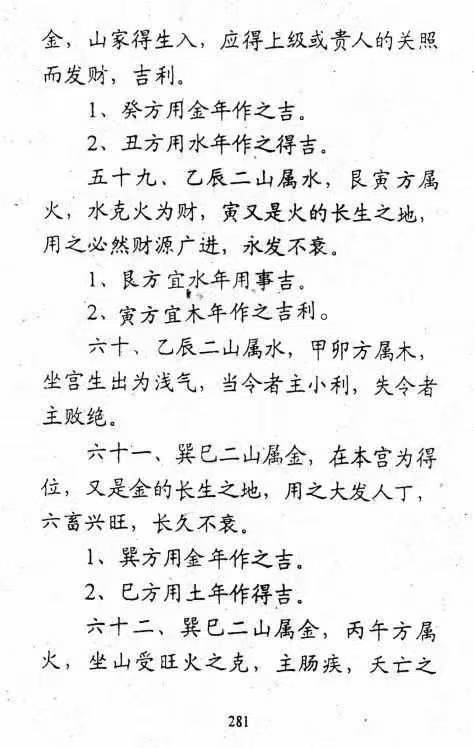 金，山家得生入，应得上级或贵人的关照
而发财，吉利。
1、癸方用金年作之吉。
2、丑方用水年作之得吉。
五十九、乙辰二山属水，艮寅方属
火，水克火为财，寅又是火的长生之地，
用之必然财源广进，永发不衰。
1、艮方宜水年用事吉。
2、寅方宜木年作之吉利。
六十、乙辰二山属水，甲卯方属木，
坐宫生出为浅气，当令者主小利，失令者
主败绝。
六十一、巽巳二山属金，在本宫为得
位，又是金的长生之地，用之大发人丁，
六畜兴旺，长久不衰。
1、巽方用金年作之吉。
2、巳方用土年作得吉。
六十二、巽巳二山属金，丙午方属
火，坐山受旺火之克，主肠疾，天亡之
281